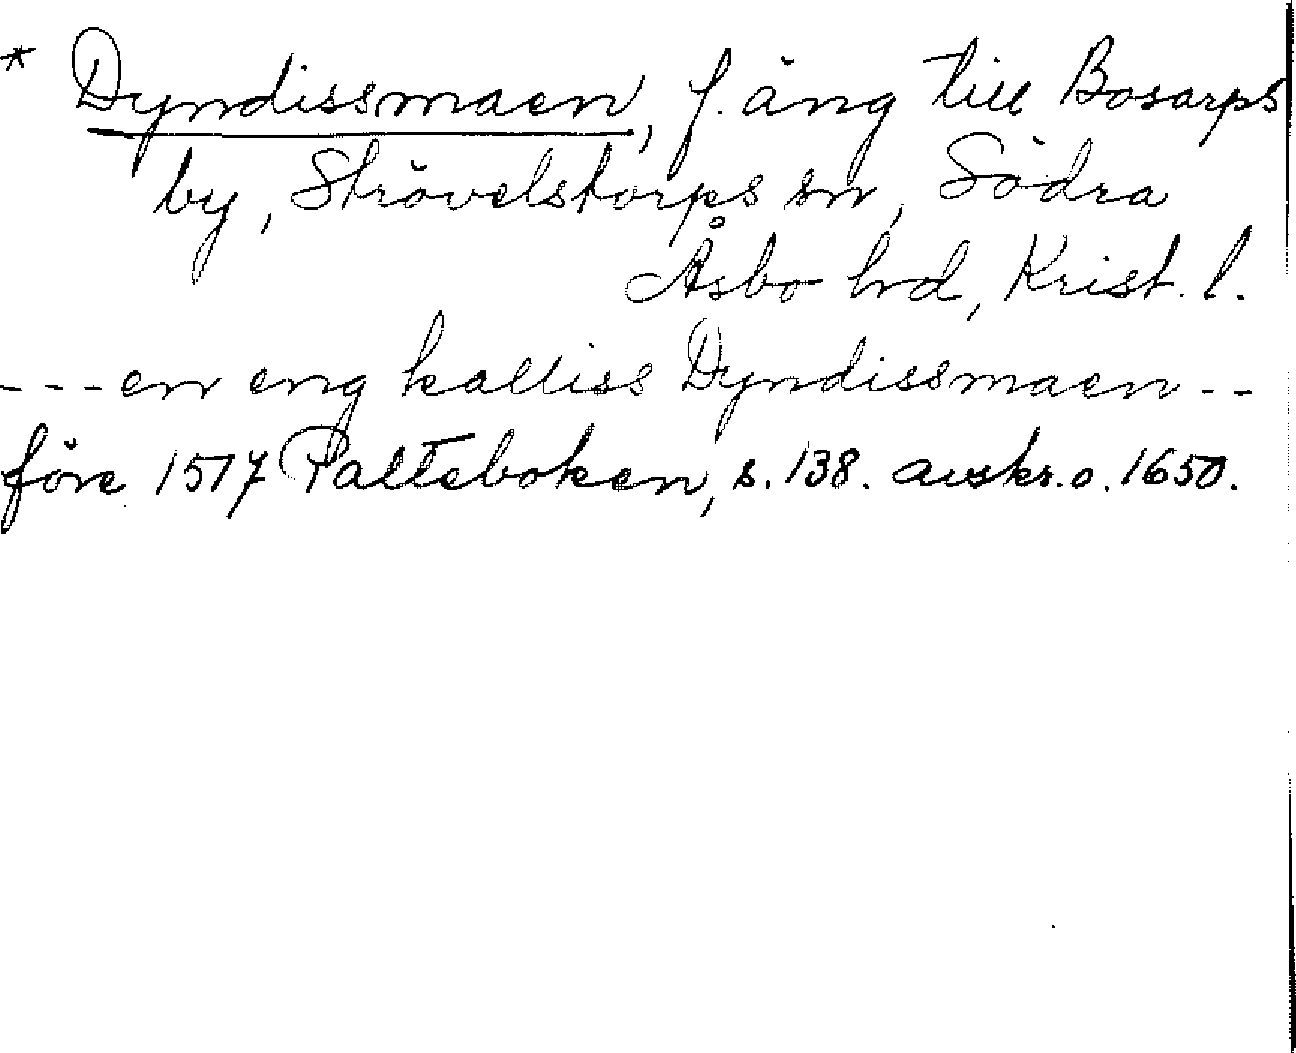 * Dyndissmaen, f. äng till Bosarps
by, Strövelstorps sn, Södra
Åsbo hd, Krist. l.
--- en eng kalliss Dyndissmaen --
före 1517 Palteboken, s. 138. avskr. o. 1650.